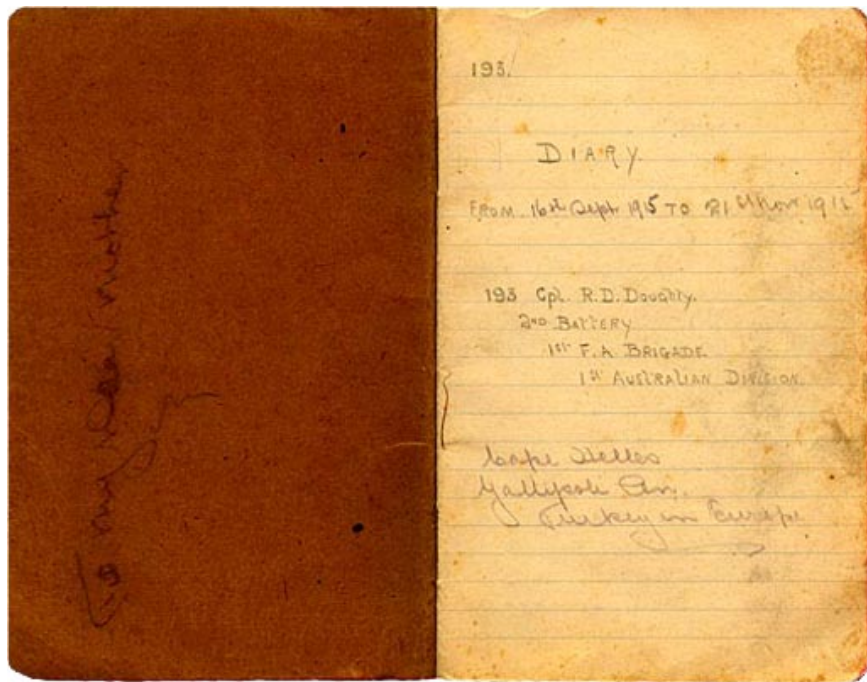 To my Dear Mother
193.
DIARY.
FROM 16th Sept 1915 TO 21st Nov 1915
193 Cpl. R.D. Doughty.
2ND BATTERY
1st F.A. BRIGADE.
1st AUSTRALIAN DIVISION.
Cape Helles
Gallipoli Pen.
Turkey in Europe